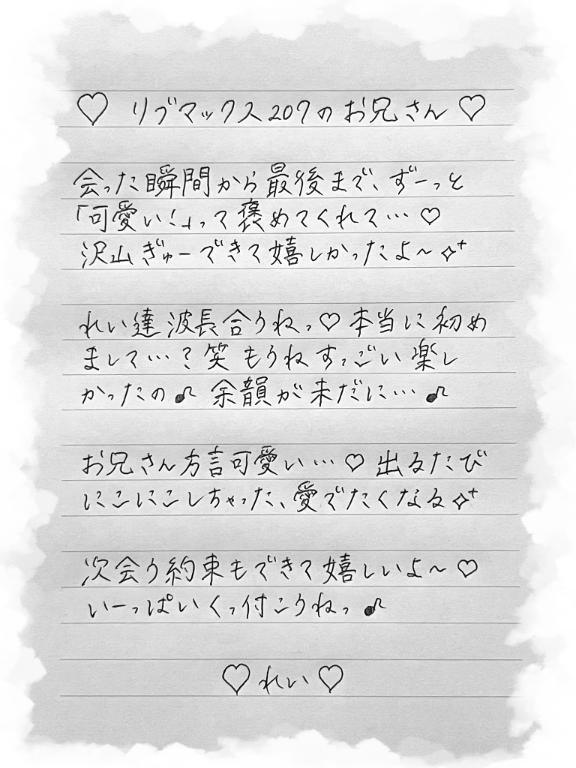 ♡ リブマックス207のお兄さん ♡
会った瞬間から最後まで、ずーっと
「可愛い!」って褒めてくれて…♡
沢山ぎゅーできて嬉しかったよ〜✧⁺
れい達波長合うねっ♡本当に初め
まして…?笑 もうねすっごい楽し
かったの♪ 余韻が未だに…♪
お兄さん方言可愛い…♡ 出るたび
にこにこしちゃった、愛でたくなる✧⁺
次会う約束もできて嬉しいよ〜♡
いーっぱいくっ付こうねっ♪
♡れい♡